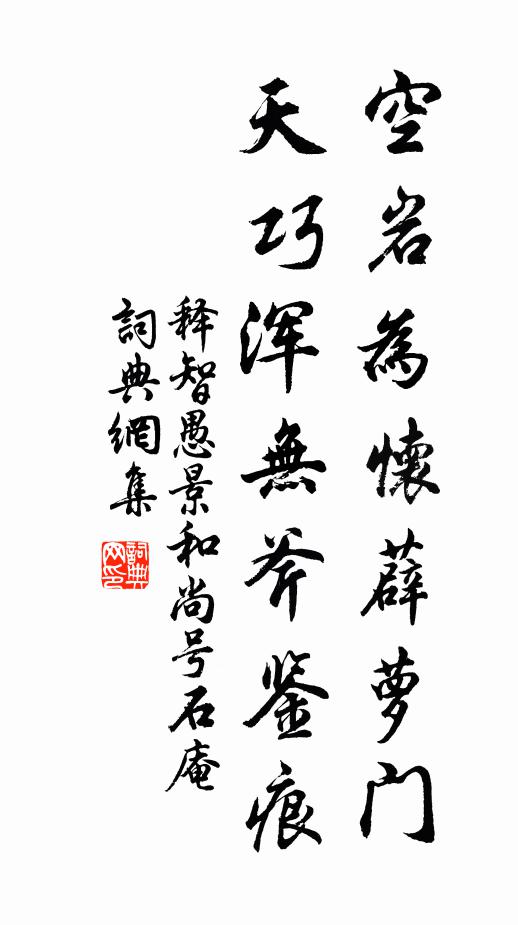 空岩為懷薜萝門
天巧浑無斧鉴痕
释智愚景和尚号石庵
詞典網集
詞典网印